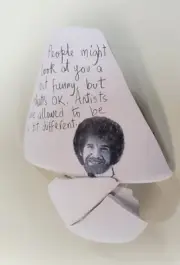 People might
look at you a
bit funny, but
thats OK. Artists
are allowed to be
a bit different